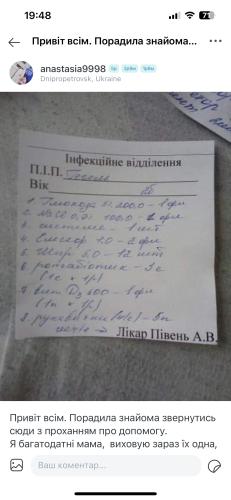 19:48
71
Привіт всім. Порадила знайома...
anastasia9998
Dnipropetrovsk, Ukraine
Інфекційне відділення
П.І.П.
Вік
1. Глюкоза 5% 200,0 - 1 фл
2. NaCl 0,9% 100,0 - 2 фл
3. система - 1 шт
4.
5. Шпр 5,0 - 12 шт
6.
7. віт D3 400 - 1 фл
8. рукавички
Лікар Півень А.В.
Привіт всім. Порадила знайома звернутись
сюди з проханням про допомогу.
Я багатодатні мама, виховую зараз їх одна,
Ваш коментар...